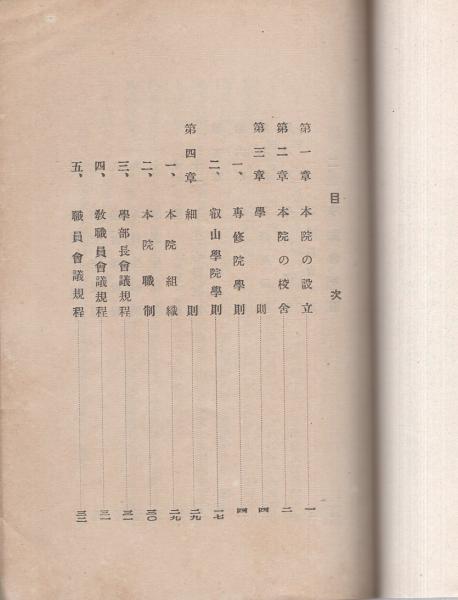 目次
第一章 本院の設立 一
第二章 本院の校舎 二
第三章 學則 四
一、専修院學則 四
二、叡山學院學則 一七
第四章 細則 二九
一、本院組織 二九
二、本院職制 三〇
三、學部長會議規程 三一
四、敎職員會議規程 三一
五、職員會議規程 三二